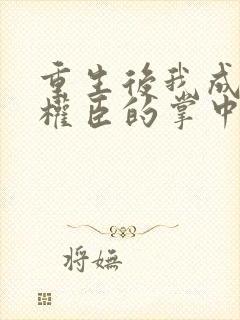 重生後我成
權臣的掌中
将嫵